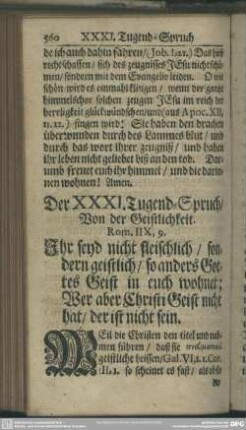 560 XXXI. Tugend-Spruch
de ich auch dahin fahren / (Job. I, 21.) Das heist
rechtschaffen / sich des zeugnisses JEsu nicht schä-
men / sondern mit dem Evangelio leiden. O wie
schön wird es einmahl klingen / wenn der gantze
himmelschor solchen zeugen JEsu im reich der
herrligkeit glückwünschen / und (aus Apoc. XII,
11. 12.) singen wird: Sie haben den drachen
überwunden durch des Lammes blut / und
durch das wort ihrer zeugniß / und haben
ihr leben nicht geliebet biß an den tod. Dar-
umb freuet euch ihr himmel / und die darin-
nen wohnen! Amen.
Der XXXI. Tugend-Spruch /
Von der Geistlichkeit.
Rom. IIX, 9.
Ihr seyd nicht fleischlich / son-
dern geistlich / so anders Got-
tes Geist in euch wohnet;
Wer aber Christi Geist nicht
hat / der ist nicht sein.
WEil die Christen den titel und nah-
men führen / daß sie
geistliche heissen / Gal. VI, 1. 1. Cor.
II, 1. so scheinet es fast / als ob